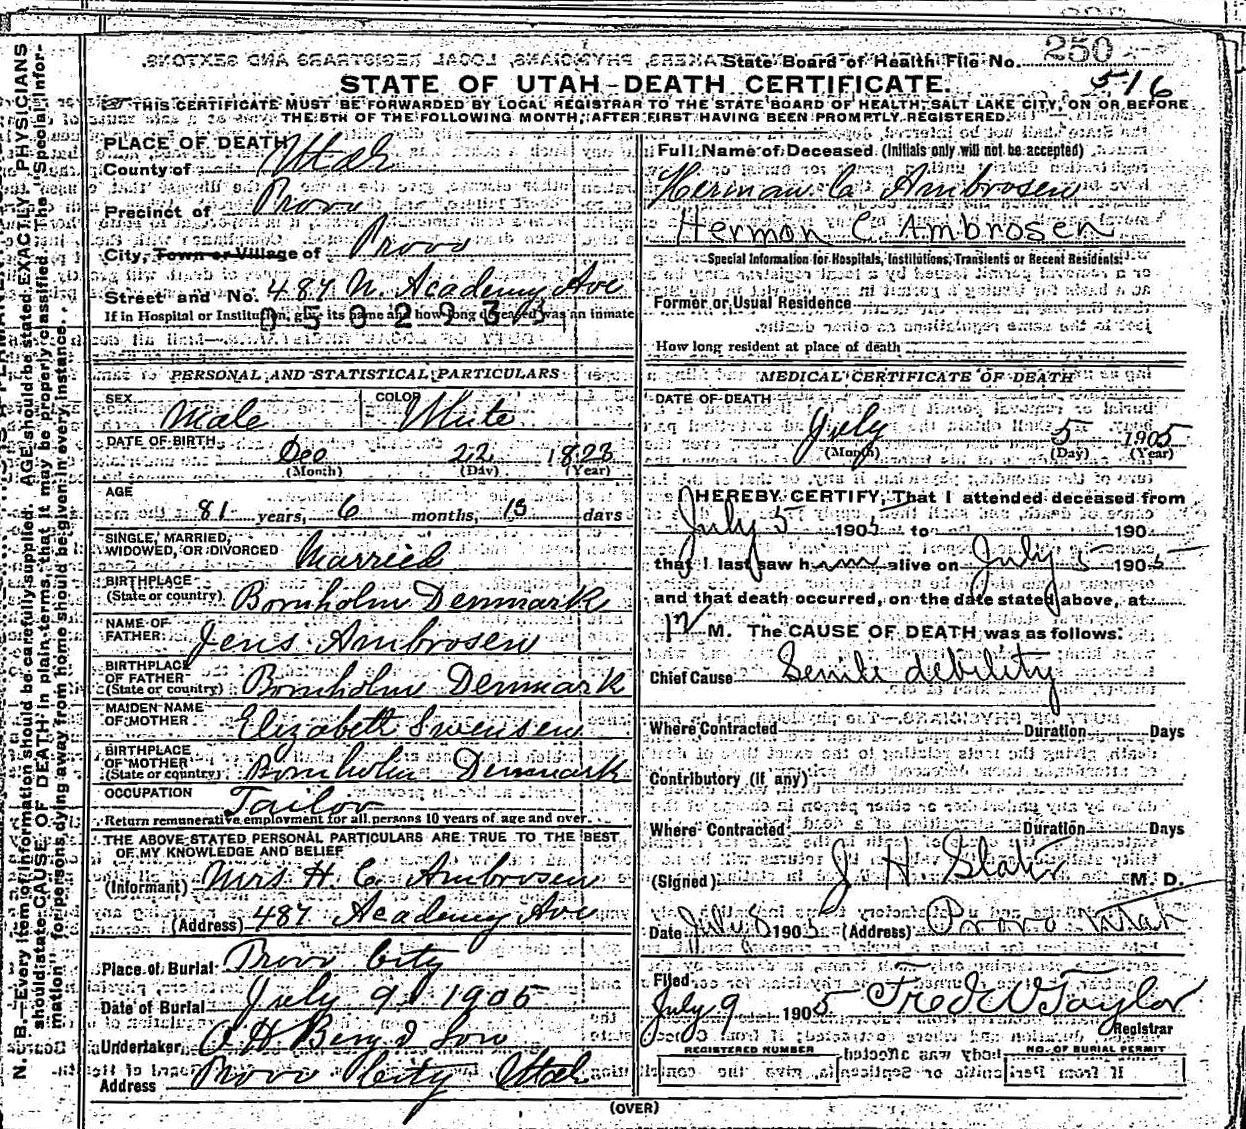 State Board of Health File No. 250
516
STATE OF UTAH-DEATH CERTIFICATE.
THIS CERTIFICATE MUST BE FORWARDED BY LOCAL REGISTRAR TO THE STATE BOARD OF HEALTH, SALT LAKE CITY, ON OR BEFORE
THE 5TH OF THE FOLLOWING MONTH, AFTER FIRST HAVING BEEN PROMPTLY REGISTERED.
PLACE OF DEATH
County of Utah
Precinct of Provo
City, Town or Village of Provo
Street and No. 487 N. Academy Ave
If in Hospital or Institution, give its name and how long deceased was an inmate
PERSONAL AND STATISTICAL PARTICULARS
SEX Male COLOR White
DATE OF BIRTH Dec 22 1823
(Month) (Day) (Year)
AGE 81 years, 6 months, 13 days
SINGLE, MARRIED,
WIDOWED, OR DIVORCED Married
BIRTHPLACE
(State or country) Bornholm Denmark
NAME OF
FATHER Jens Ambrosen
BIRTHPLACE
OF FATHER
(State or country) Bornholm Denmark
MAIDEN NAME
OF MOTHER Elizabeth Swensen
BIRTHPLACE
OF MOTHER
(State or country) Bornholm Denmark
OCCUPATION Tailor
Return remunerative employment for all persons 10 years of age and over
THE ABOVE STATED PERSONAL PARTICULARS ARE TRUE TO THE BEST
OF MY KNOWLEDGE AND BELIEF
(Informant) Mrs H. C. Ambrosen
(Address) 487 Academy Ave
Place of Burial Provo City
Date of Burial July 9, 1905
Undertaker O H Berg & Son
Address Provo City Utah
Full Name of Deceased (Initials only will not be accepted)
Herman C Ambrosen
Hermon C. Ambrosen
Special Information for Hospitals, Institutions, Transients or Recent Residents:
Former or Usual Residence
How long resident at place of death
MEDICAL CERTIFICATE OF DEATH
DATE OF DEATH
July 5 1905
(Month) (Day) (Year)
I HEREBY CERTIFY, That I attended deceased from
July 5 1905 to 190
that I last saw him alive on July 5 1905
and that death occurred, on the date stated above, at
12 M. The CAUSE OF DEATH was as follows:
Chief Cause Senile debility
Where Contracted Duration Days
Contributory (if any)
Where Contracted Duration Days
(Signed) J H Slater M. D.
Date July 8 1905 (Address) Provo Utah
Filed
July 9 1905 Fred W Taylor
Registrar
REGISTERED NUMBER NO. OF BURIAL PERMIT
(OVER)
N. B.—Every item of information should be carefully supplied. AGE should be stated EXACTLY. PHYSICIANS
should state CAUSE OF DEATH in plain terms, that it may be properly classified. The "Special Infor-
mation" for persons dying away from home should be given in every instance.